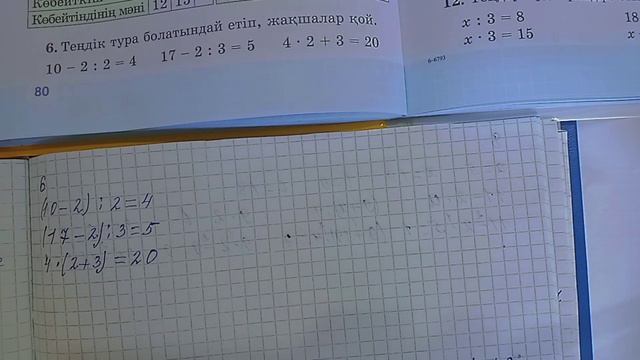 Көбейтіндінің мәні 12 15
6. Теңдік тура болатындай етіп, жақшалар қой.
10 − 2 : 2 = 4 17 − 2 : 3 = 5 4 · 2 + 3 = 20
80
12.
x : 3 = 8 18
x · 3 = 15 x
6-6793
6
(10 − 2) : 2 = 4
(17 − 2) : 3 = 5
4 · (2 + 3) = 20